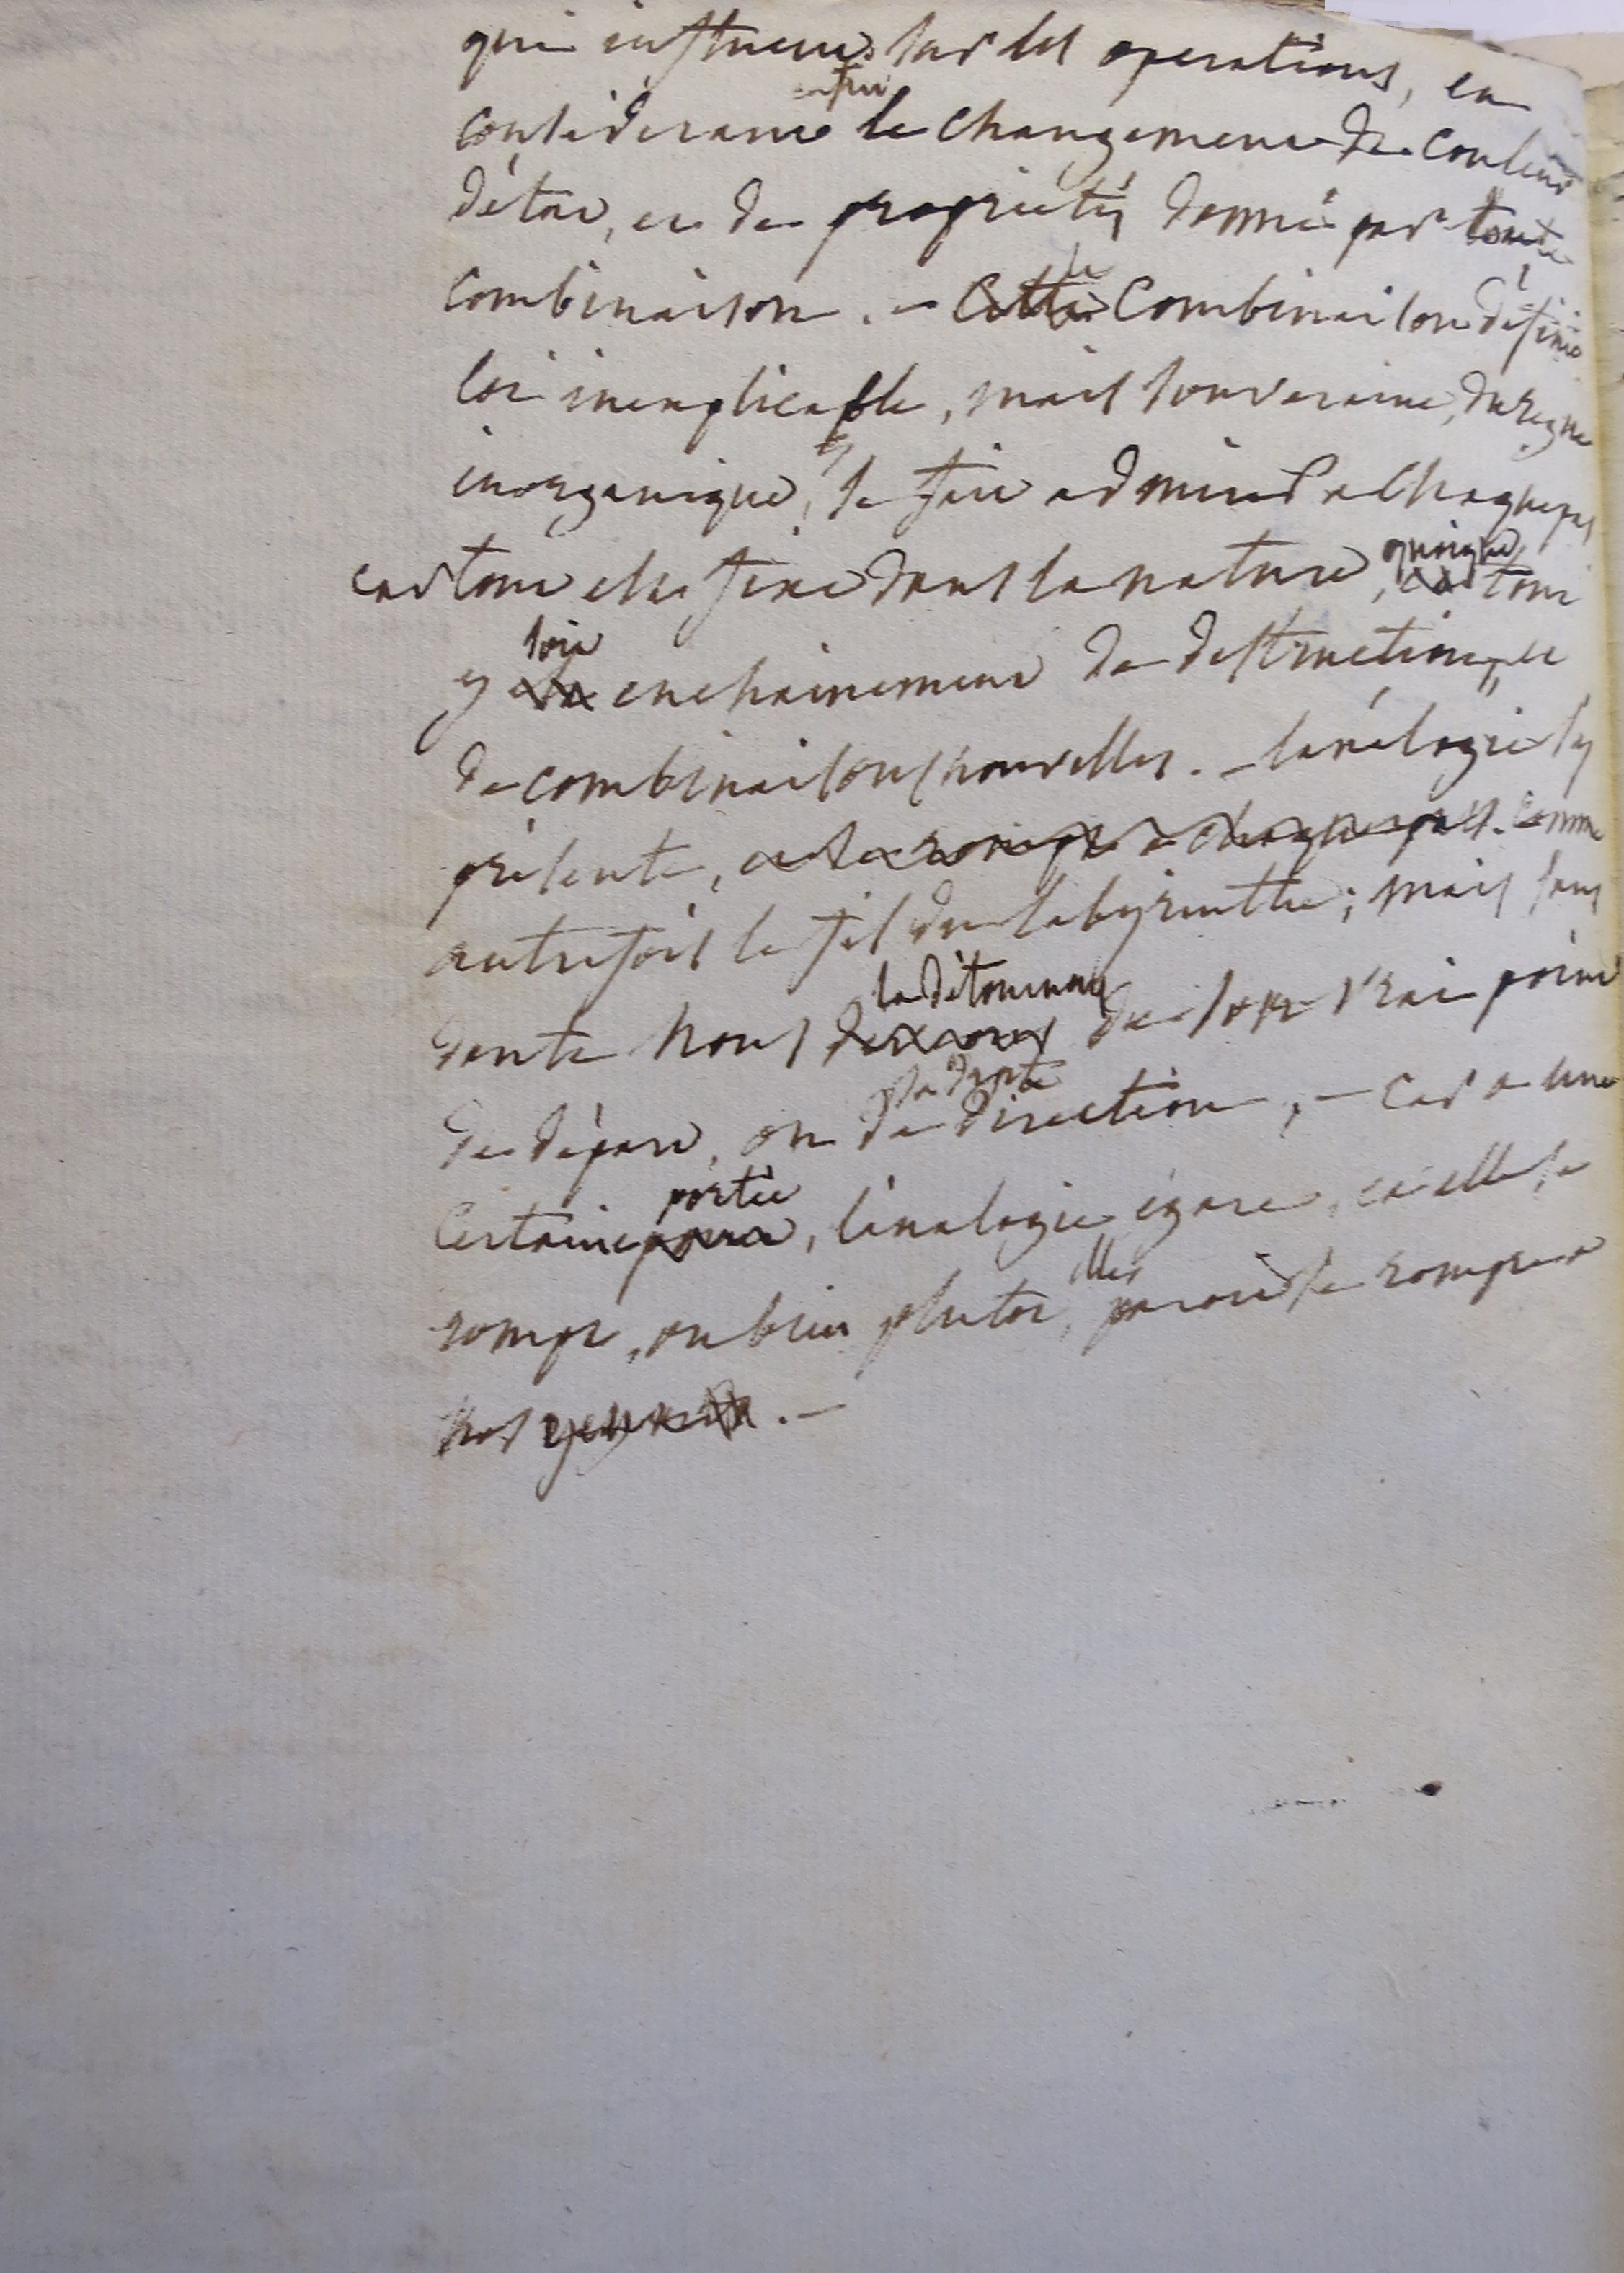 qui influent sur les operations, en
enfin
considerant le changement de couleur
d'état, et de propriétés donné par toute
la
combinaison. – Cette Combinaison définie
loi inexplicable, mais souveraine, du regne
inorganique, se fait admirer a chaque pas
quoique
car tout est fixe dans la nature, car tout
soit
y est enchainement de destruction, et
de combinaisons nouvelles. – l'analogie s'y
présente, et se rompt a chaque pas. comme
autrefois le fil du labyrinthe; mais sans
la détournons
doute nous de son vrai point
de départ, ou de direction, – car a une
portée
certaine, l'analogie égare, et elle se
elle
rompt, ou bien plutot, parait se rompre a
nos yeux. –